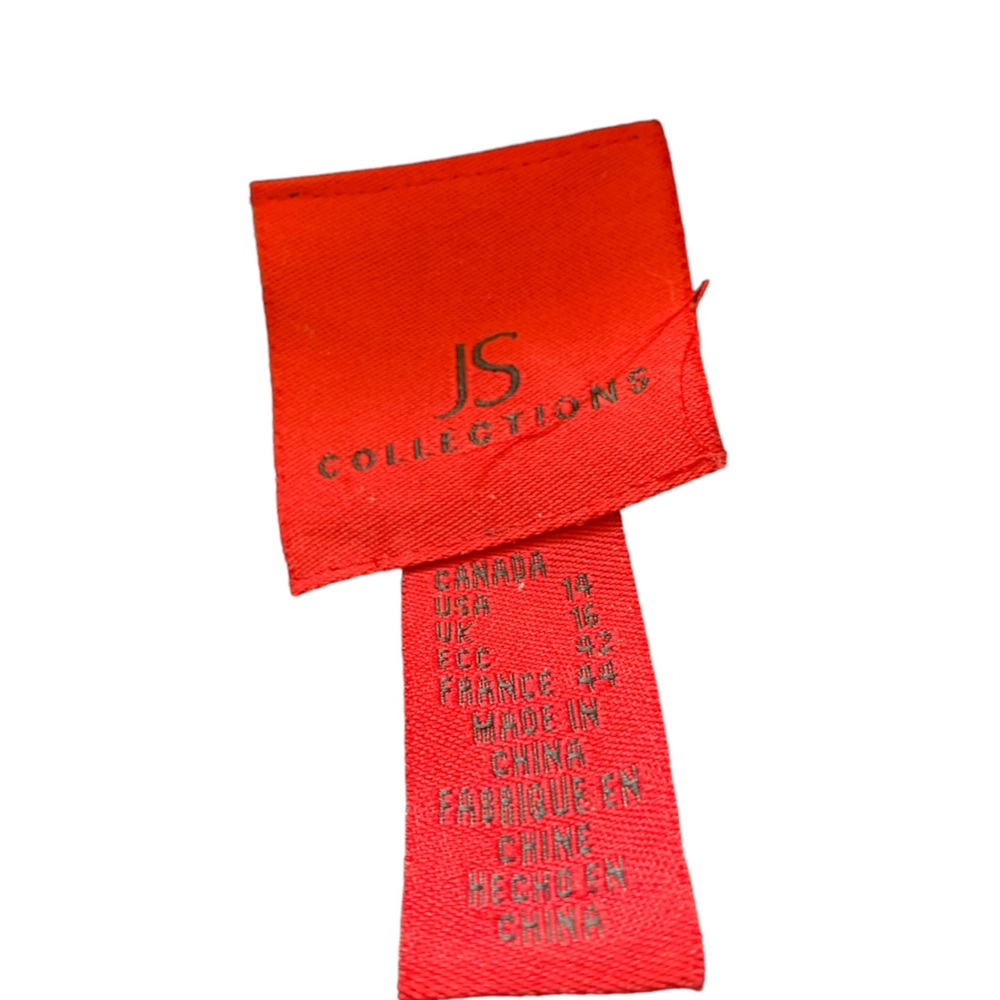 JS
COLLECTIONS
CANADA
USA 14
UK 16
ECC 42
FRANCE 44
MADE IN
CHINA
FABRIQUE EN
CHINE
HECHO EN
CHINA